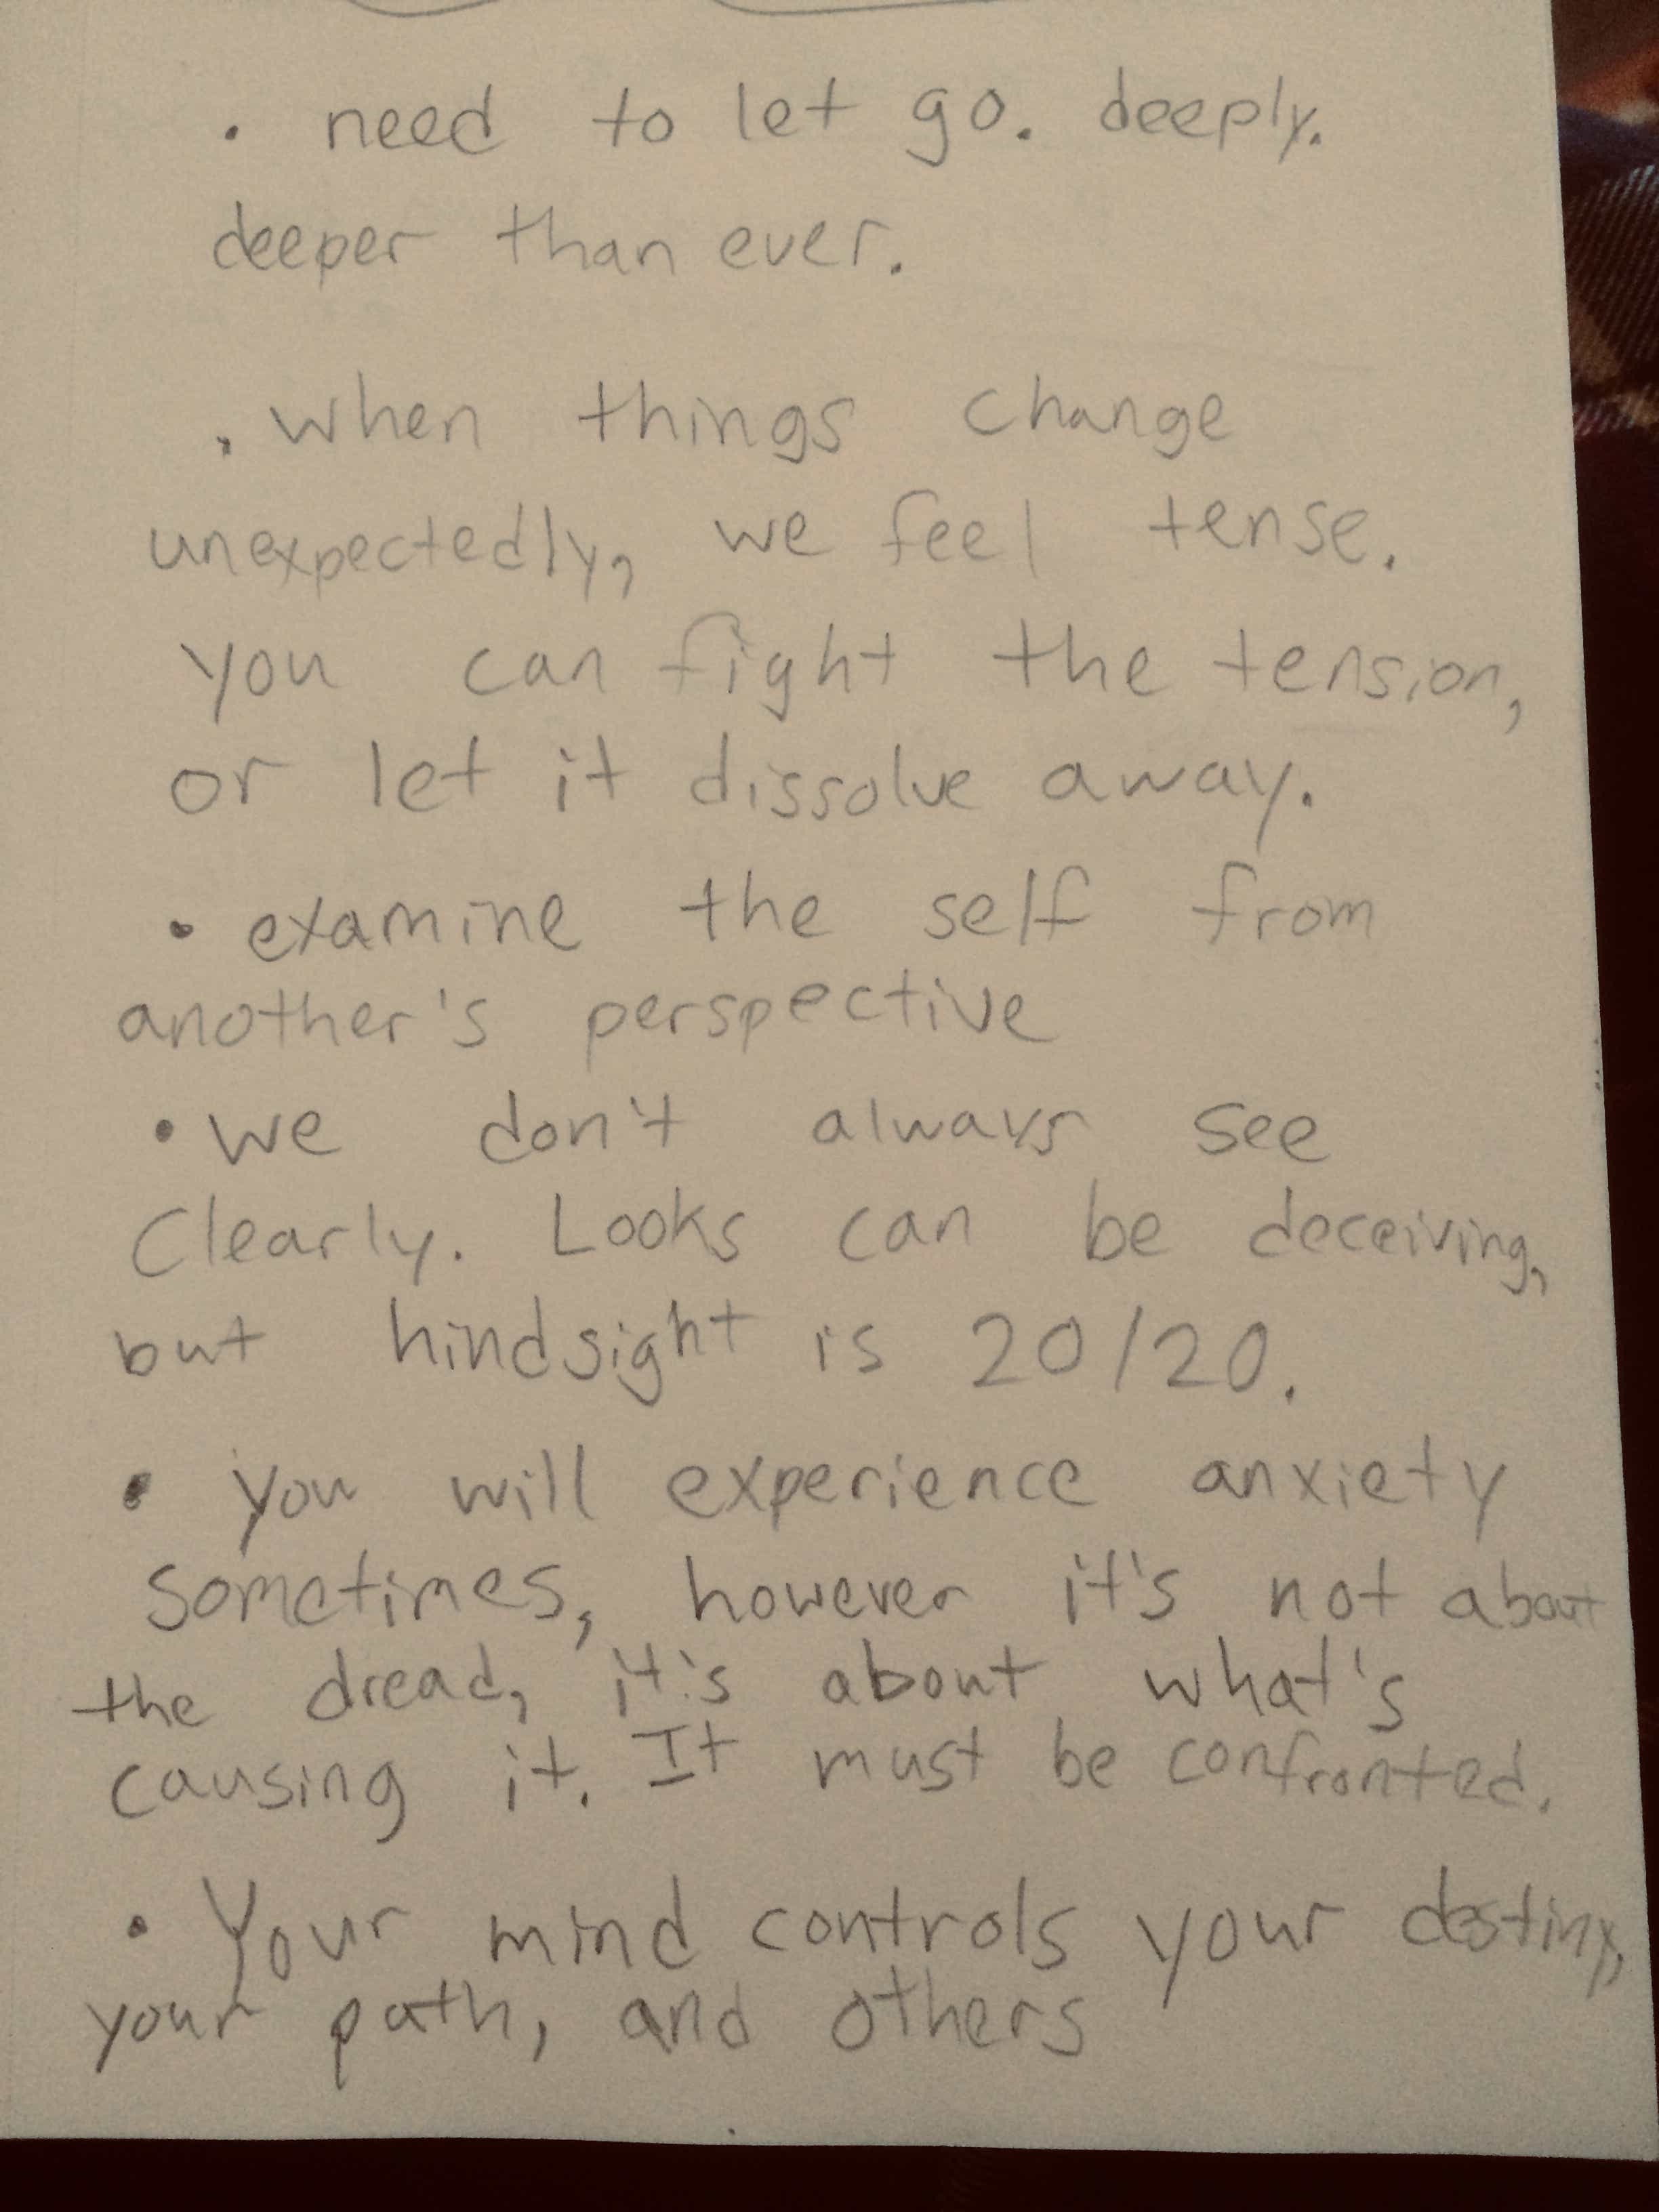 • need to let go. deeply.
deeper than ever.
• when things change
unexpectedly, we feel tense.
you can fight the tension,
or let it dissolve away.
• examine the self from
another's perspective
• we don't always see
Clearly. Looks can be deceiving,
but hindsight is 20/20.
• you will experience anxiety
sometimes, however it's not about
the dread, it's about what's
causing it. It must be confronted.
• Your mind controls your destiny,
your path, and others